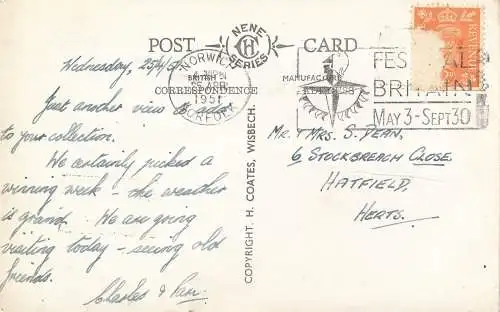 POST CARD
NENE
HC
SERIES
BRITISH MANUFACTURE
CORRESPONDENCE ADDRESS
NORWICH
25 APR
1951
NORFOLK
FESTIVAL
BRITAIN
MAY 3 - SEPT 30
REVENUE
Wednesday, 25/4/51.
Just another view to add
to your collection.
We certainly picked a
winning week - the weather
is grand. We are going
visiting today - seeing old
friends.
Charles &
COPYRIGHT. H. COATES, WISBECH.
MR. & MRS. S. DEAN,
6, STOCKBREACH CLOSE,
HATFIELD,
HERTS.